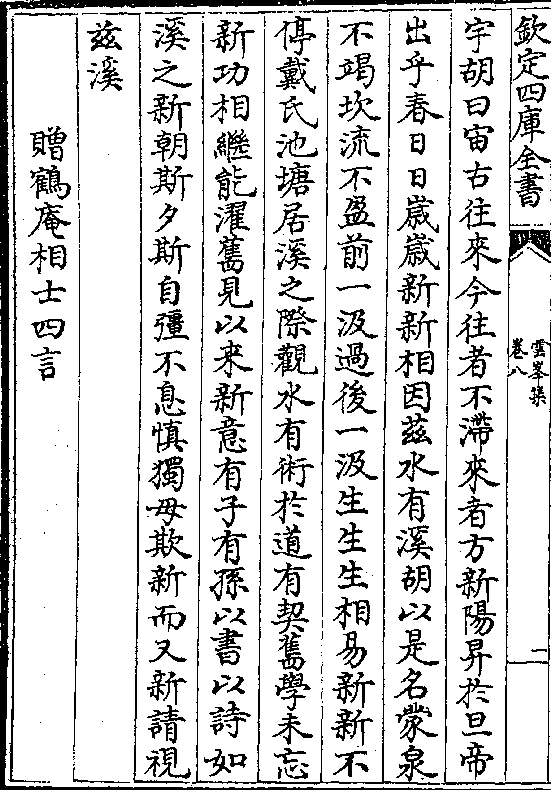 欽定四庫全書
雲峯集
卷八
二
宇胡曰宙古往來今往者不滯來者方新陽昇於旦帝
出乎春日日嵗嵗新新相因兹水有溪胡以是名蒙泉
不竭坎流不盈前一汲過後一汲生生生相易新新不
停戴氏池塘居溪之際觀水有術於道有契舊學未忘
新功相繼能濯舊見以来新意有子有孫以書以詩如
溪之新朝斯夕斯自彊不息慎獨毋欺新而又新請視
兹溪
贈鶴庵相士四言